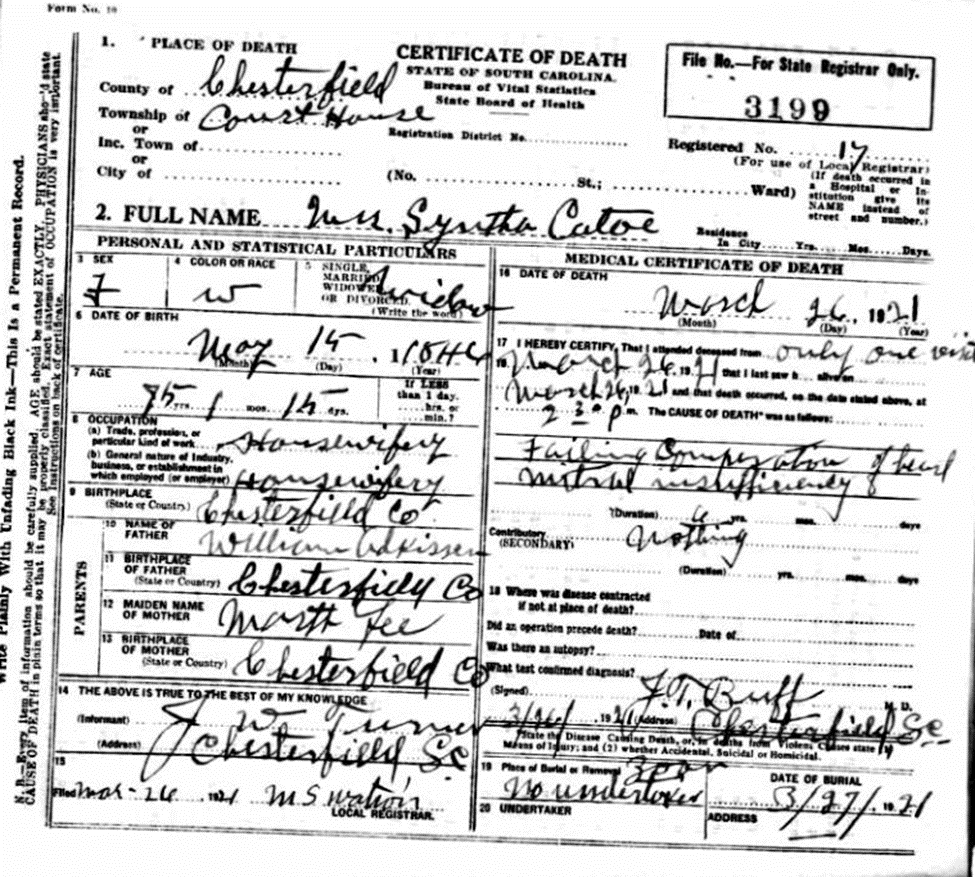 Form No. 10
1. PLACE OF DEATH
County of Chesterfield
Township of Court House
or
Inc. Town of
or
City of
CERTIFICATE OF DEATH
STATE OF SOUTH CAROLINA.
Bureau of Vital Statistics
State Board of Health
Registration District No.
(No. St.; Ward)
File No.—For State Registrar Only.
3199
Registered No. 17
(For use of Local Registrar)
(If death occurred in
a Hospital or In-
stitution give its
NAME instead of
street and number.)
2. FULL NAME Mrs. Syntha Catoe
Residence
In City Yrs. Mos. Days.
PERSONAL AND STATISTICAL PARTICULARS
3 SEX
F
4 COLOR OR RACE
W
5 SINGLE,
MARRIED,
WIDOWED
OR DIVORCED.
(Write the word)
Widow
6 DATE OF BIRTH
May 15
(Month) (Day) (Year)
7 AGE
yrs. mos. 15 days.
If LESS
than 1 day.
hrs. or
min.?
8 OCCUPATION
(a) Trade, profession, or
particular kind of work Housewifery
(b) General nature of Industry,
business, or establishment in
which employed (or employer) Housewifery
9 BIRTHPLACE
(State or Country) Chesterfield Co
PARENTS
10 NAME OF
FATHER William Adkisson
11 BIRTHPLACE
OF FATHER
(State or Country) Chesterfield Co
12 MAIDEN NAME
OF MOTHER Marth Lee
13 BIRTHPLACE
OF MOTHER
(State or Country) Chesterfield Co
14 THE ABOVE IS TRUE TO THE BEST OF MY KNOWLEDGE
(Informant) J W Turner
(Address) Chesterfield SC
15
Filed Mar-26 1921 M S Watson
LOCAL REGISTRAR.
MEDICAL CERTIFICATE OF DEATH
16 DATE OF DEATH
March 26, 1921
(Month) (Day) (Year)
17 I HEREBY CERTIFY, That I attended deceased from only one visit
19 March 26, 1921 that I last saw h alive on
March 26, 1921 and that death occurred, on the date stated above, at
2 30 p m. The CAUSE OF DEATH* was as follows:
Failing Compensation of heart
mitral insufficiency
(Duration) yrs. mos. days
Contributory Nothing
(SECONDARY)
(Duration) yrs. mos. days
18 Where was disease contracted
if not at place of death?
Did an operation precede death? Date of
Was there an autopsy?
What test confirmed diagnosis?
(Signed) J. T. Buff M. D.
3/26/ 1921 (Address) Chesterfield SC
*State the Disease Causing Death, or, in deaths from Violent Causes state
Means of Injury; and (2) whether Accidental, Suicidal or Homicidal.
19 Place of Burial or Removal Zoar
DATE OF BURIAL
3/27/ 1921
20 UNDERTAKER
No undertaker
ADDRESS
Write Plainly With Unfading Black Ink—This Is a Permanent Record.
N. B.—Every item of information should be carefully supplied. AGE should be stated EXACTLY. PHYSICIANS should state
CAUSE OF DEATH in plain terms so that it may be properly classified. Exact statement of OCCUPATION is very important.
See instructions on back of certificate.